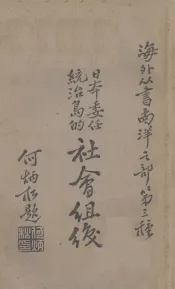 海外丛書南洋之部第三種
日本委任
統治島的
社會組織
何炳松題